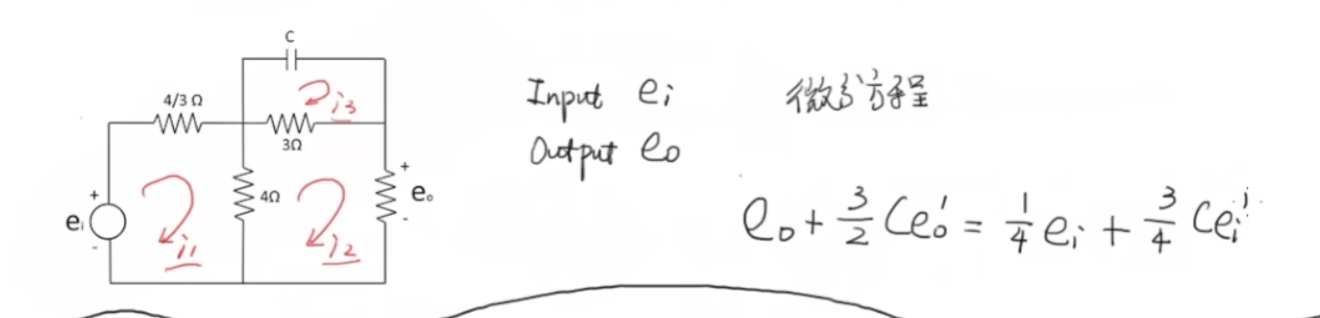 C
i3
4/3 Ω
3Ω
4Ω
+
eᵢ
-
i1
i2
+
eₒ
-
Input eᵢ
Output eₒ
微分方程
eₒ + 3/2 Ceₒ' = 1/4 eᵢ + 3/4 Ceᵢ'